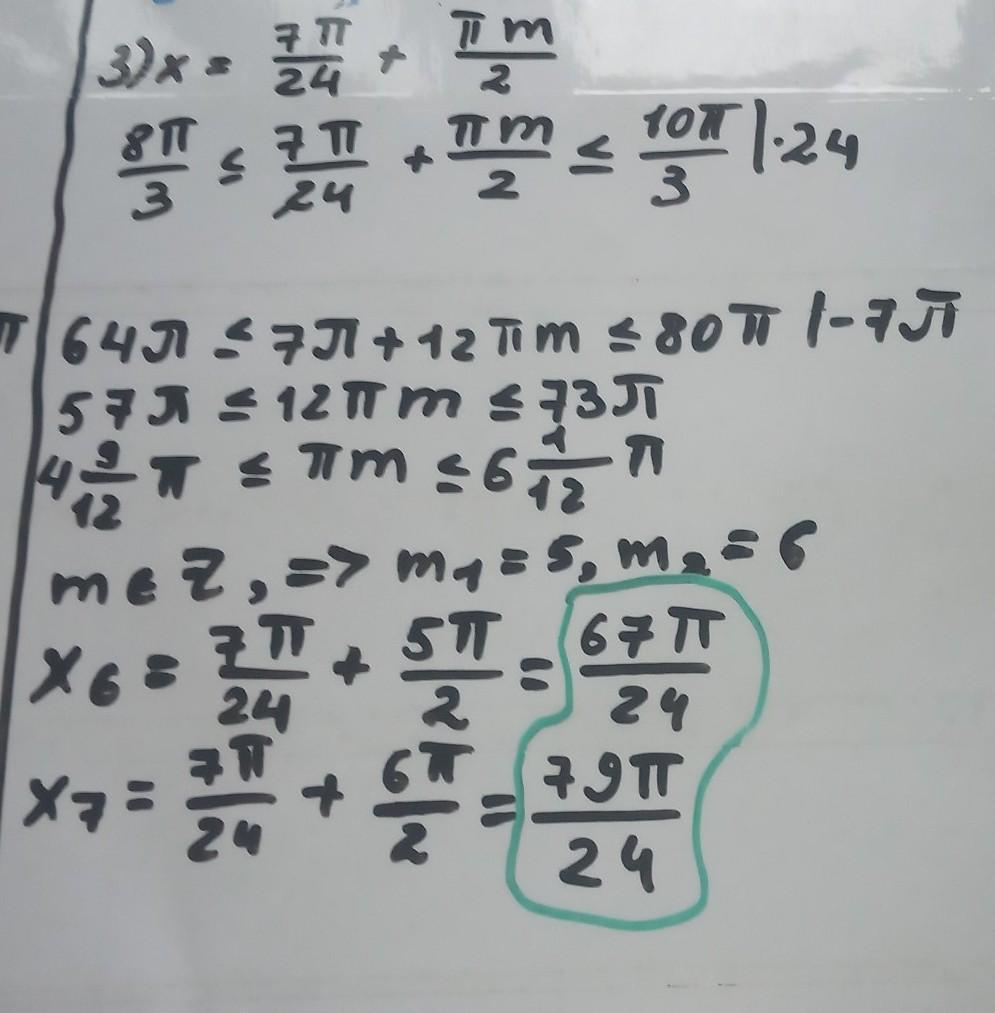 3) x = 7π/24 + πm/2
8π/3 ≤ 7π/24 + πm/2 ≤ 10π/3 |·24
π 64π ≤ 7π + 12πm ≤ 80π |-7π
57π ≤ 12πm ≤ 73π
4 9/12 π ≤ πm ≤ 6 1/12 π
m ∈ Z, => m₁ = 5, m₂ = 6
x₆ = 7π/24 + 5π/2 = 67π/24
x₇ = 7π/24 + 6π/2 = 79π/24